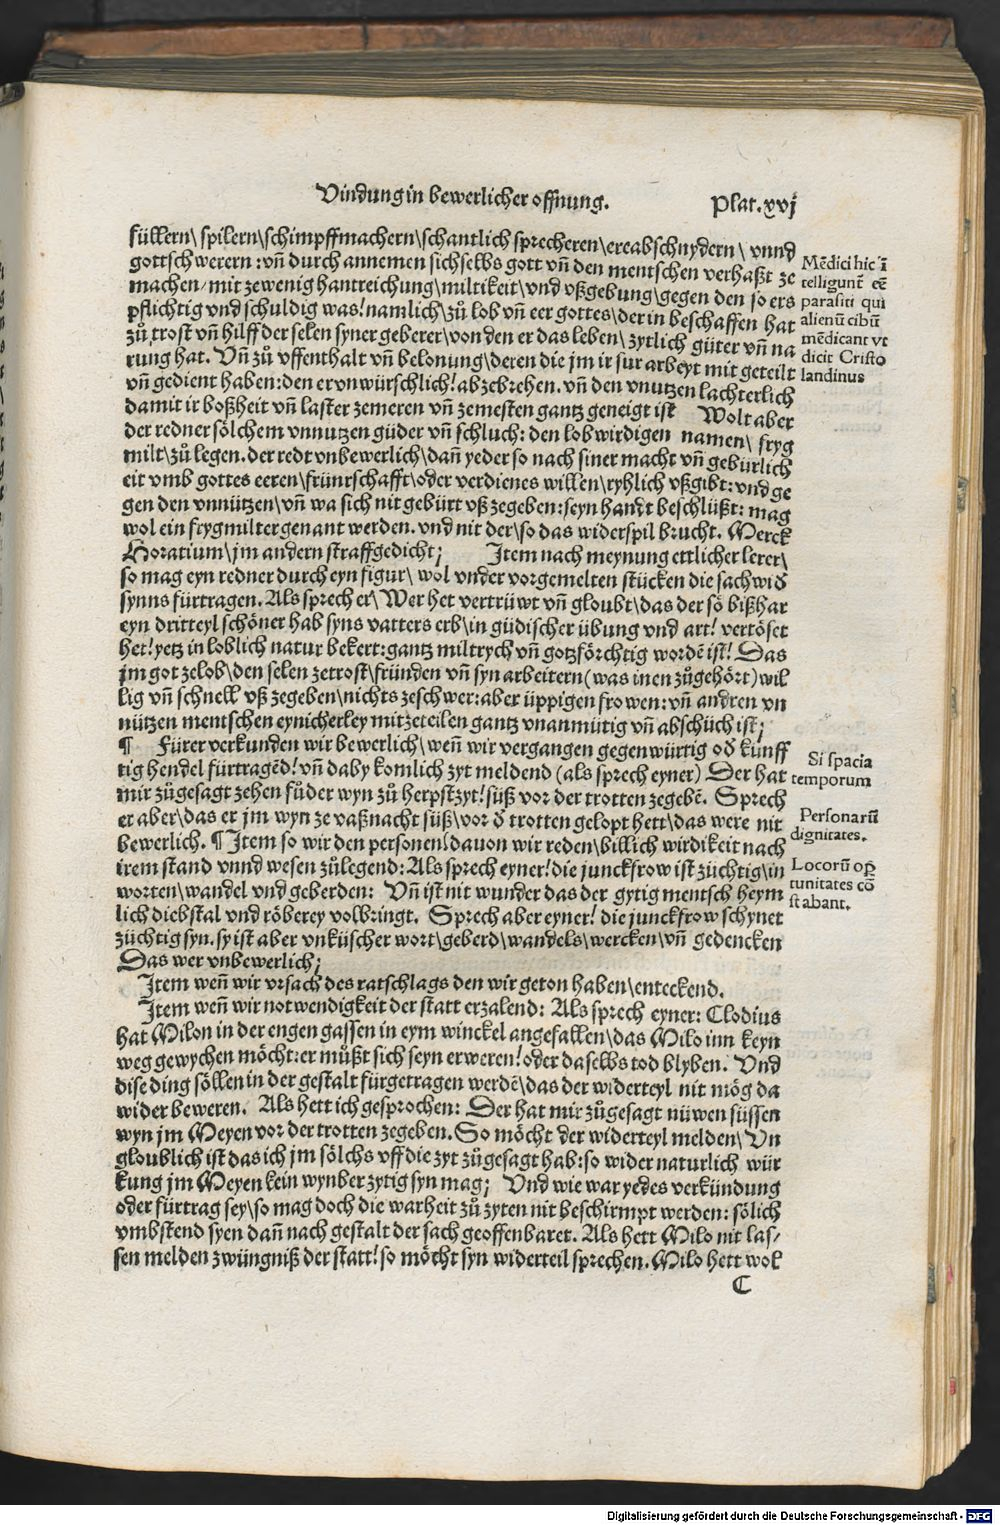 Vindung in bewerlicher offnung. Plat.xvj
füllern\ spilern\schimpffmachern\schantlich sprecheren\ereabschnydern\ vnnd
gottschwerern: vn̄ durch annemen sichselbs gott vn̄ den mentschen verhaßt ze
machen/ mit ze wenig hantreichung\miltikeit\vnd vßgebung\gegen den so ers
pflichtig vnd schuldig was! namlich\zů lob vn̄ eer gottes\der in beschaffen hat
zů trost vn̄ hilff der selen syner geberer\von den er das leben\ zytlich güter vn̄ na
rung hat. Vn̄ zů vffenthalt vn̄ belonung\deren die jm ir sur arbeyt mit geteilt
vn̄ gedient haben: den er vnwürschlich! abzebrehen. vn̄ den vnutzen lachterlich
damit ir boßheit vn̄ laster zemeren vn̄ zemesten gantz geneigt ist Wolt aber
der redner sölchem vnnutzen güder vn̄ schluch: den lobwirdigen namen\ fryg
milt\zů legen. der redt vnbewerlich\dan̄ yeder so nach siner macht vn̄ gebürlich
eit vmb gottes eeren\früntschafft\oder verdienes willen\ryhlich vßgibt: vnd ge
gen den vnnützen\vn̄ wa sich nit gebürt vß zegeben: seyn handt beschlüßt: mag
wol ein frygmilter genant werden. vnd nit der\so das widerspil brucht. Merck
Horatium\jm andern straffgedicht; Item nach meynung ettlicher lerer\
so mag eyn redner durch eyn figur\ wol vnder vorgemelten stücken die sach wid̄
synns fürtragen. Als sprech er\Wer het vertrüwt vn̄ gloubt\das der sō bißhar
eyn dritteyl schöner hab syns vatters erb\in güdischer übung vnd art! vertöset
het! yetz in loblich natur bekert: gantz miltrych vn̄ gotzförchtig wordē ist! Das
jm got zelob\den selen zetrost\fründen vn̄ syn arbeitern (was inen zůgehört) wil
lig vn̄ schnell vß zegeben\nichts zeschwer: aber üppigen frowen: vn̄ andren vn
nützen mentschen eynicherley mitzeteilen gantz vnanmütig vn̄ abschüch ist;
¶ Fürer verkunden wir bewerlich\wen̄ wir vergangen gegenwürtig od̄ kunff
tig hendel fürtragēd! vn̄ daby komlich zyt meldend (als sprech eyner) Der hat
mir zůgesagt zehen fůder wyn zů herpstzyt! süß vor der trotten zegebē. Sprech
er aber\das er jm wyn ze vaßnacht süß\vor d̄ trotten gelopt hett\das were nit
bewerlich. ¶ Item so wir den personen\dauon wir reden\billich wirdikeit nach
irem stand vnnd wesen zůlegend: Als sprech eyner! die junckfrow ist züchtig\in
worten\wandel vnd geberden: Vn̄ ist nit wunder das der gytig mentsch heym
lich diebstal vnd röberey volbringt. Sprech aber eyner! die junckfrow schynet
züchtig syn. sy ist aber vnküscher wort\geberd\wandels\wercken\vn̄ gedencken
Das wer vnbewerlich;
Item wen̄ wir vrsach des ratschlags den wir geton haben\enteckend.
Item wen̄ wir notwendigkeit der statt erzalend: Als sprech eyner: Clodius
hat Milon in der engen gassen in eym winckel angefallen\das Milo inn keyn
weg gewychen möcht: er můßt sich seyn erweren! oder daselbs tod blyben. Vnd
dise ding söllen in der gestalt fürgetragen werdē\das der widerteyl nit mög da
wider beweren. Als hett ich gesprochen: Der hat mir zůgesagt nüwen süssen
wyn jm Meyen vor der trotten zegeben. So möcht der widerteyl melden\ Vn
gloublich ist das ich jm sölchs vff die zyt zůgesagt hab: so wider naturlich wür
kung jm Meyen kein wynber zytig syn mag; Vnd wie war yedes verkündung
oder fürtrag sey\so mag doch die warheit zů zyten nit beschirmpt werden: sölich
vmbstend syen dan̄ nach gestalt der sach geoffenbaret. Als hett Milo nit las/
sen melden zwüngniß der statt! so möcht syn widerteil sprechen. Milo hett wol
C
Mēdici hic ī
telligunt̄ eē
parasiti qui
alienū cibū
mēdicant vt
dicit Cristo
landinus
Si spacia
temporum
Personarū
dignitates.
Locorū op̄
tunitates cō
stabant.
Digitalisierung gefördert durch die Deutsche Forschungsgemeinschaft - DFG